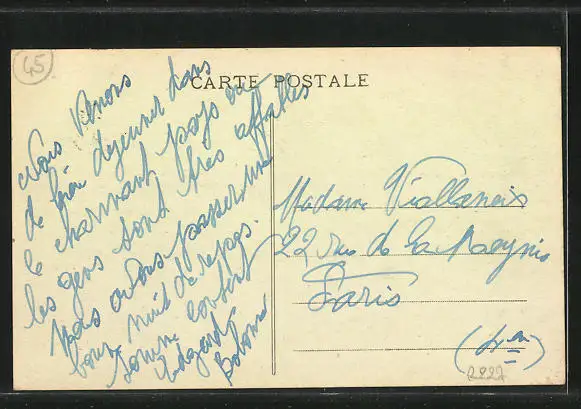 45
CARTE POSTALE
Nous venons
de bien dejeuner dans
le charmant pays ou
les gens sont très affables
nous avons passer une
bonne nuit de repos.
Edgard
Madame Viallaneix
22 rue de la
Paris